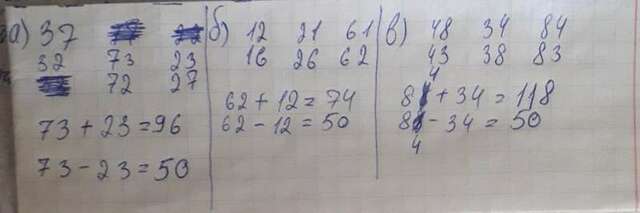 а) 37
32 73 23
72 27
73 + 23 = 96
73 - 23 = 50
б) 12 21 61
16 26 62
62 + 12 = 74
62 - 12 = 50
в) 48 34 84
43 38 83
84 + 34 = 118
84 - 34 = 50